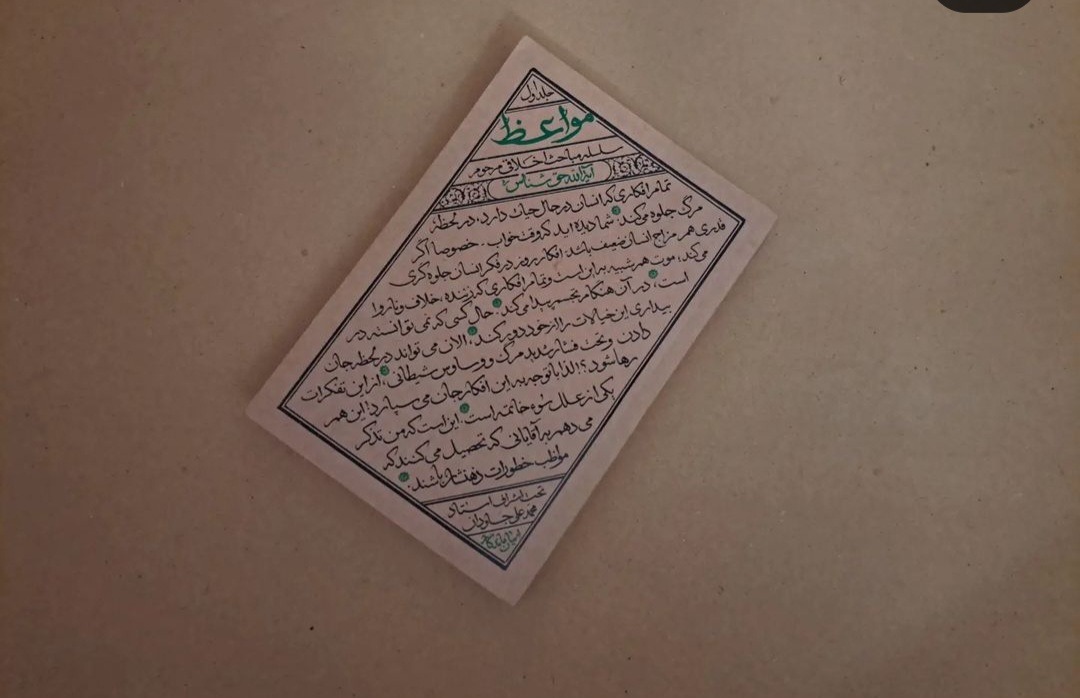 جلد اول
مواعظ
سلسله مباحث اخلاقی مرحوم
آیة‌الله حق شناس
تمام افکاری که انسان در حال حیات دارد، در لحظهٔ
مرگ جلوه می‌کند. شما دیده‌اید که وقت خواب. خصوصا اگر
قدری هم مزاج انسان ضعیف باشد افکار روز در فکر انسان جلوه‌گری
می‌کند، موت هم شبیه به این است و تمام افکاری که زننده، خلاف و ناروا
است، در آن هنگام تجسم پیدا می‌کند. حال کسی که نمی‌توانسته در
بیداری این خیالات را از خود دور کند، الان می‌تواند در لحظه جان
دادن و تحت فشار شدید مرگ و وساوس شیطانی، از این تفکرات
رها شود؟! لذا با توجه به این افکار جان می‌سپارد! این هم
یکی از علل سوء خاتمه است. این است که من تذکر
می‌دهم به آقایانی که تحصیل می‌کنند که
مواظب خطورات ذهنشان باشند.
تحت اشراف استاد
محمد علی جاودان